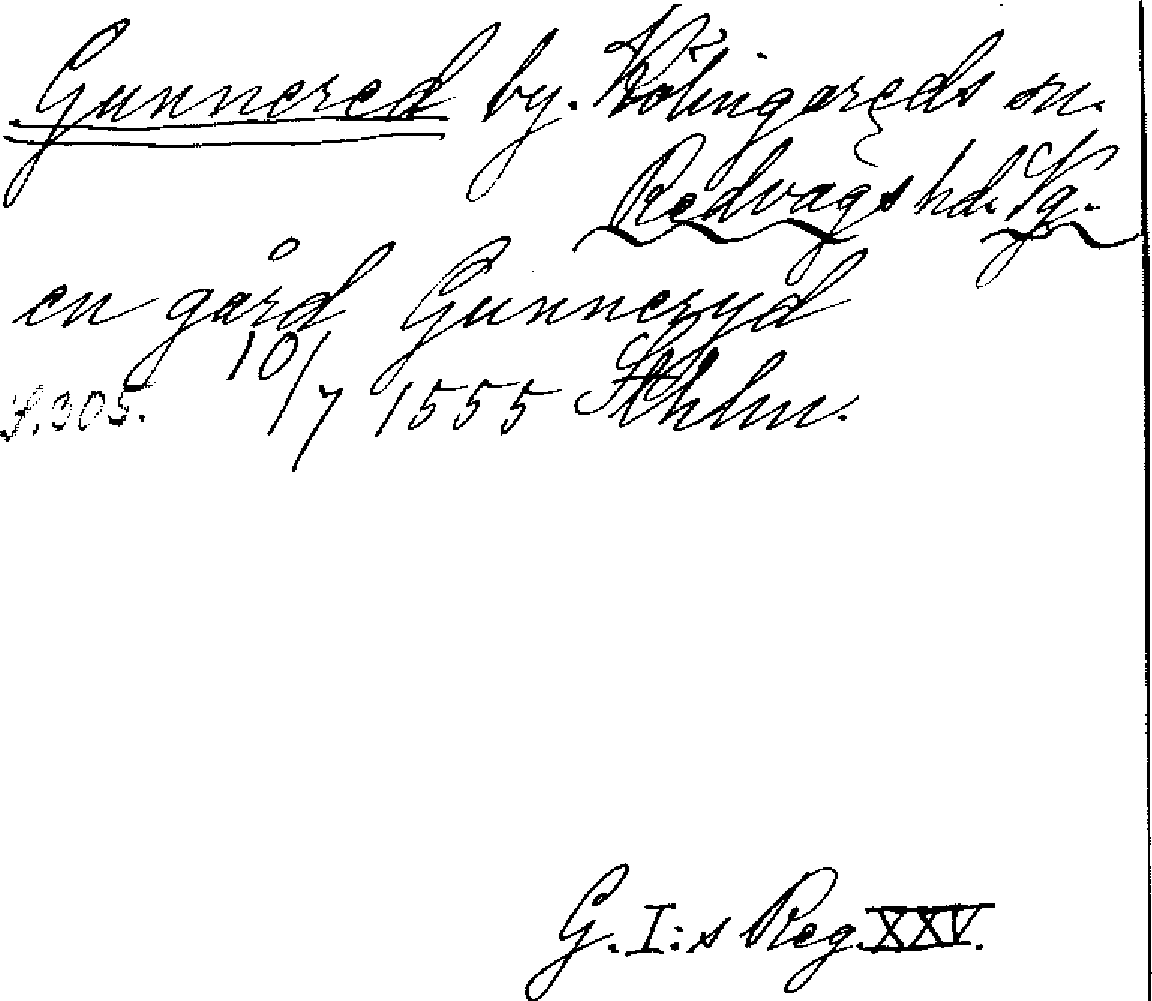 Gunnered by. Kölingareds sn.
Redvägs hd. Vg.
en gård Gunneryd
S. 305. 10/7 1555 Sthlm.
G. I:s Reg. XXV.